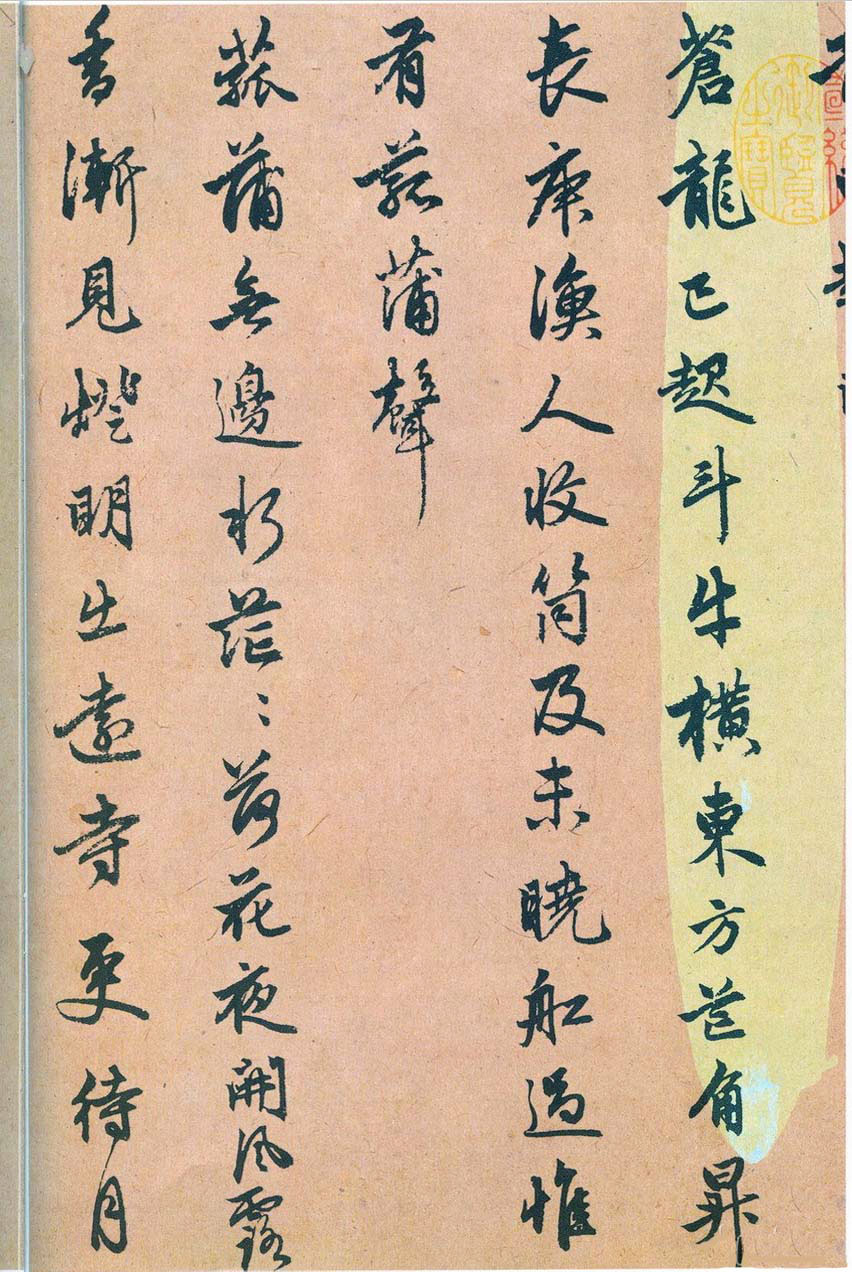 蒼龍已起斗牛橫東方芒角昇
長庚漁人收筒及未曉舡過惟
有菰蒲聲
菰蒲無邊水茫〻荷花夜開風露
香漸見燈明出遠寺更待月
御覽之寶